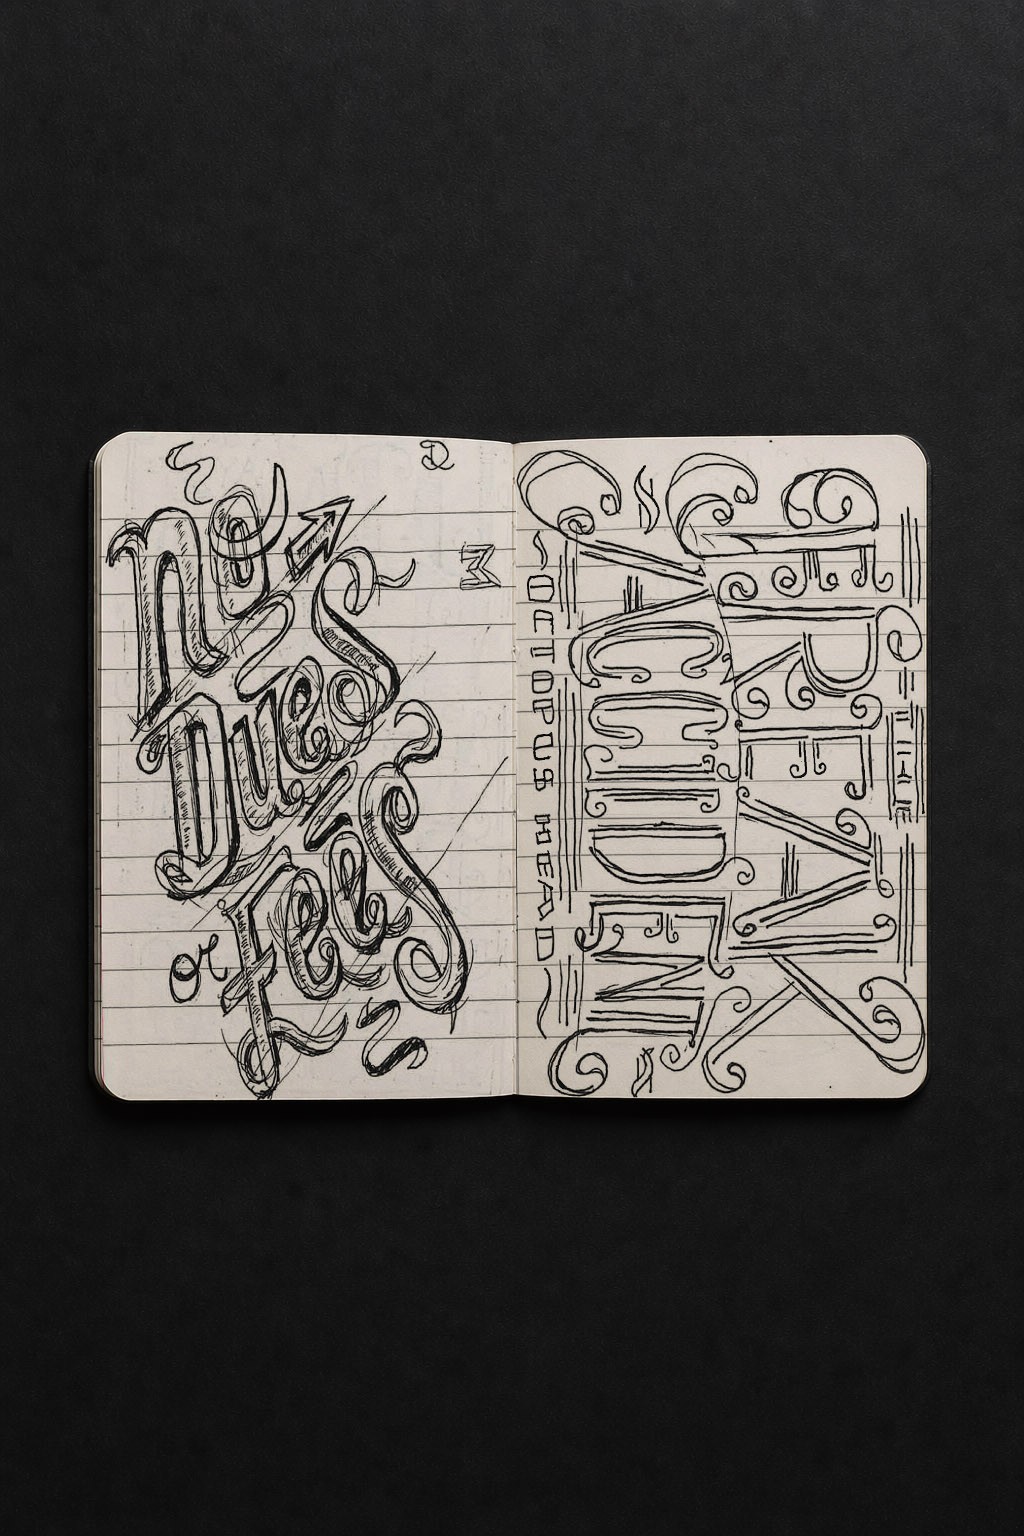 D
M
no
Dues
or fees
THE
FREAK
ACCIDENT
OCTOPUS HEAD